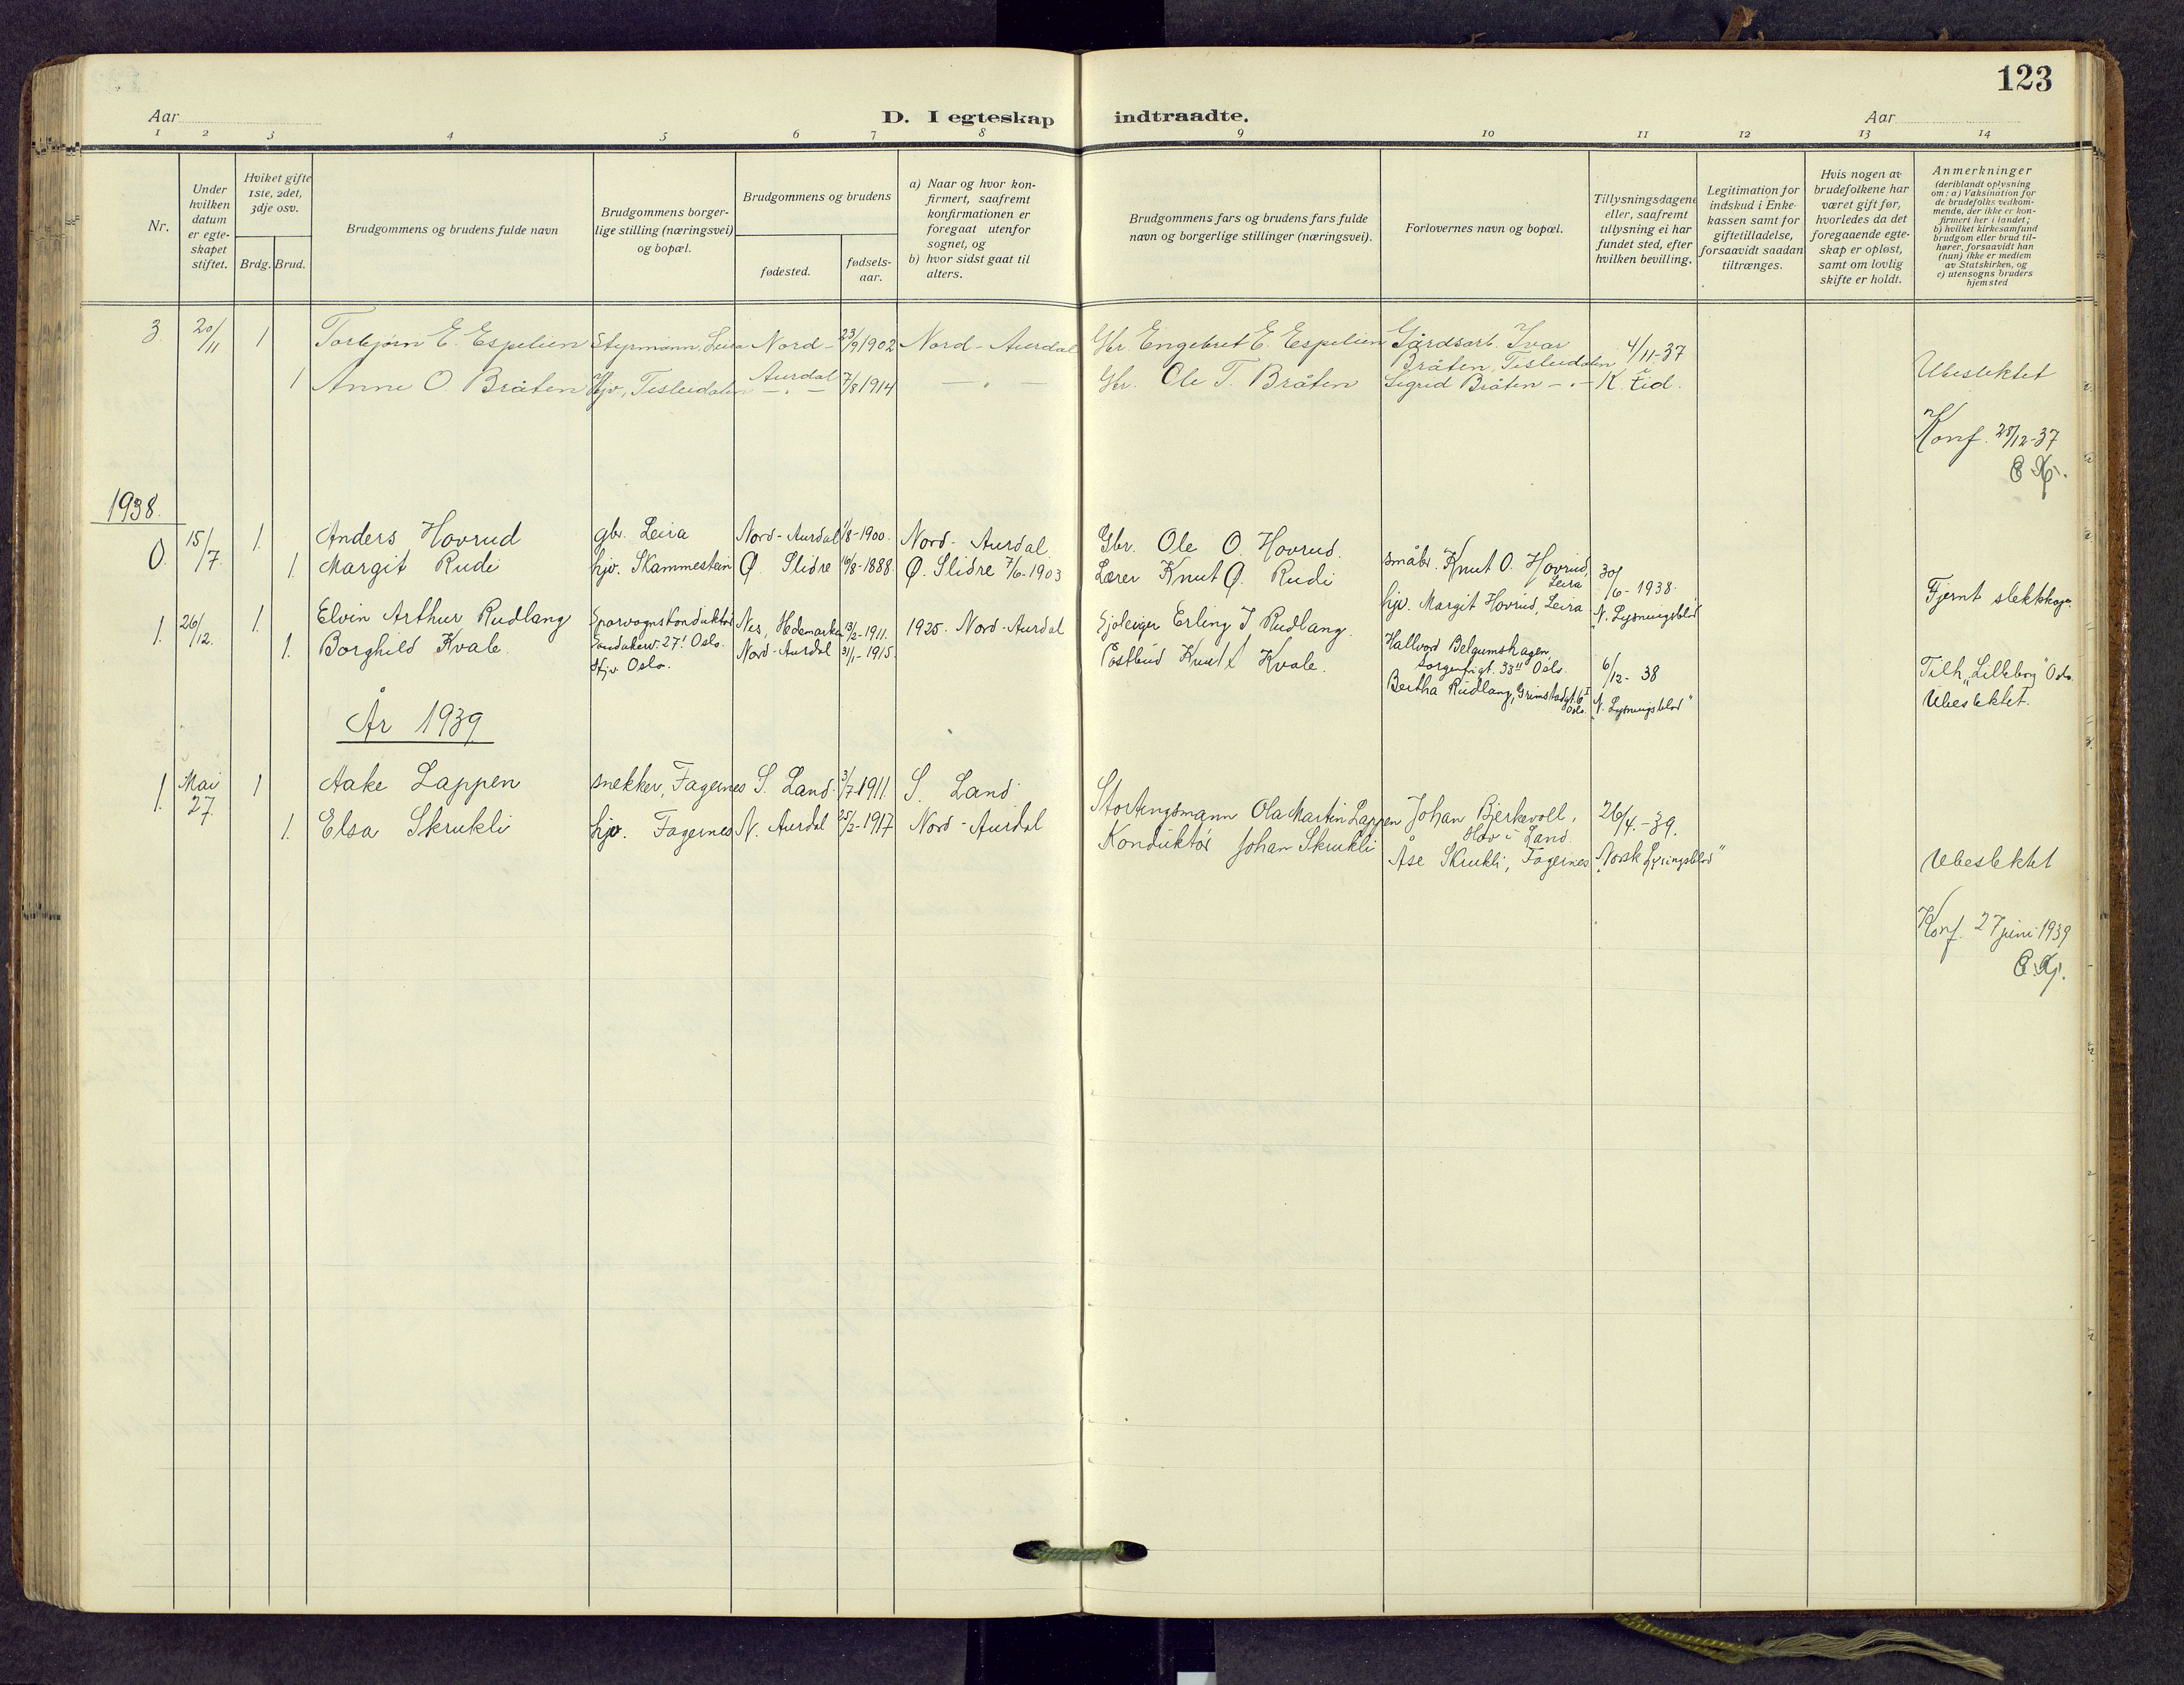 123
Aar
D. I egteskap indtraadte.
Aar
1 2 3 4 5 6 7 8 9 10 11 12 13 14
Nr.
Under
hvilken
datum
er egte-
skapet
stiftet.
Hvilket gifte
1ste, 2det,
3dje osv.
Brdg. Brud.
Brudgommens og brudens fulde navn
Brudgommens borger-
lige stilling (næringsvei)
og bopæl.
Brudgommens og brudens
fødested.
fødsels-
aar.
a) Naar og hvor kon-
firmert, saafremt
konfirmationen er
foregaat utenfor
sognet, og
b) hvor sidst gaat til
alters.
Brudgommens fars og brudens fars fulde
navn og borgerlige stillinger (næringsvei).
Forlovernes navn og bopæl.
Tillysningsdagene
eller, saafremt
tillysning ei har
fundet sted, efter
hvilken bevilling.
Legitimation for
indskud i Enke-
kassen samt for
giftetilladelse,
forsaavidt saadan
tiltrænges.
Hvis nogen av
brudefolkene har
været gift før,
hvorledes da det
foregaaende egte-
skap er opløst,
samt om lovlig
skifte er holdt.
Anmerkninger
(deriblandt oplysning
om: a) Vaksination for
de brudefolks vedkom-
mende, der ikke er kon-
firmert her i landet;
b) hvilket kirkesamfund
brudgom eller brud til-
hører, forsaavidt han
(hun) ikke er medlem
av Statskirken, og
c) utensogns bruders
hjemsted
3 20/11 1 Torbjørn E. Espelien Styrmann, Leira Nord- 23/9 1902 Nord-Aurdal Gbr. Engebret E. Espelien Gårdsarb. Ivar 4/11-37
Aurdal Bråten, Tisleidalen
1 Anne O. Bråten Hjv., Tisleidalen — " — 7/8 1914 — " — Gbr. Ole T. Bråten Sigrid Bråten — " — K. tid. Ubeslektet
Konf. 28/12-37
E Kj.
1938.
0. 15/7 1. Anders Hovrud gbr. Leira Nord-Aurdal 1/8-1900. Nord-Aurdal. Gbr. Ole O. Hovrud. småbr. Knut O. Hovrud, 30/6-1938.
Leira
1. Margit Rudi hjv. Skammestein Ø. Slidre 16/8-1888. Ø. Slidre 7/6-1903 Lærer Knut Ø. Rudi hjv. Margit Hovrud, Leira N. Lysningsblad Fjernt slektskap.
1. 26/12. 1. Elvin Arthur Rudlang Sporvognskonduktør Nes, Hedemarken 13/2-1911. 1925. Nord-Aurdal Erling J Rudlang. Hallvord Belgumshagen,
Sandakerv. 27 Oslo. Sorgenfrigt. 33 Oslo. 6/12-38
1. Borghild Kvale. Hjv. Oslo. Nord-Aurdal 31/1-1915. Postbud Knut Kvale. Bertha Rudlang, Grimstadgt. 6 Oslo. "N. Lysningsblad" Tilh. "Lilleborg" Oslo.
Ubeslektet.
År 1939
1. Mai 27. 1 Aake Lappen snekker, Fagernes S. Land. 3/7-1911. S. Land Stortingsmann Ola Martin Lappen Johan Bjerkevoll, 26/4.-39.
Hov i Land.
1. Elsa Skrukli hjv. Fagernes N. Aurdal 25/2-1917 Nord-Aurdal Konduktør Johan Skrukli Åse Skrukli, Fagernes "Norsk Lysingsblad" Ubeslektet
Konf. 27 juni 1939
E. Kj.